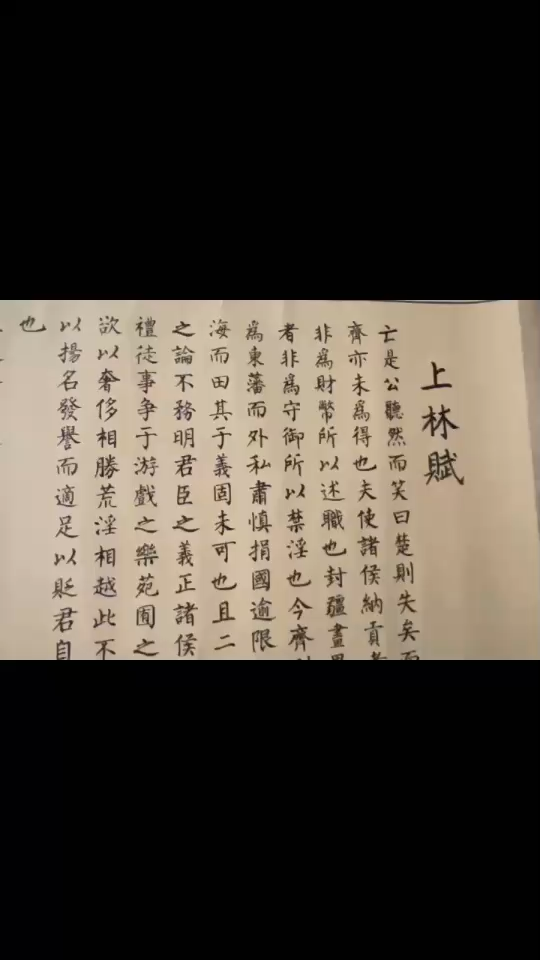 上林賦
亡是公聽然而笑曰楚則失矣而
齊亦未為得也夫使諸侯納貢者
非為財幣所以述職也封疆畫界
者非為守御所以禁淫也今齊
為東藩而外私肅慎捐國逾限
海而田其于義固未可也且二
之論不務明君臣之義正諸侯
禮徒事争于游戲之樂苑囿之
欲以奢侈相勝荒淫相越此不
以揚名發譽而適足以貶君自
也